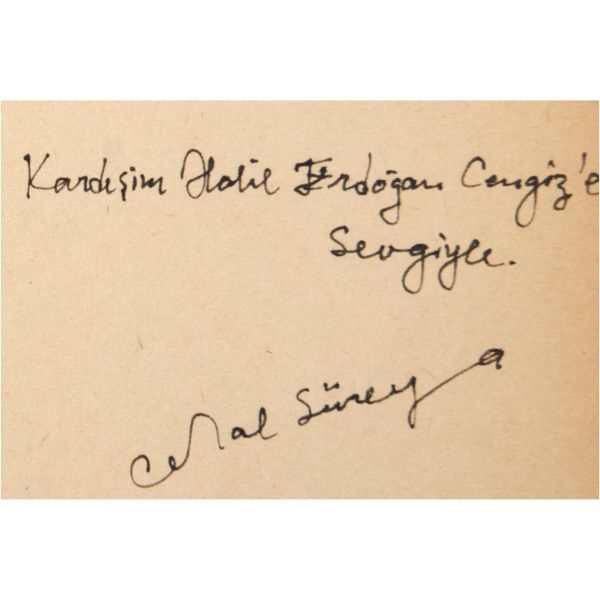 Kardeşim Halil Erdoğan Cengiz'e
Sevgiyle.
Cemal Süreya